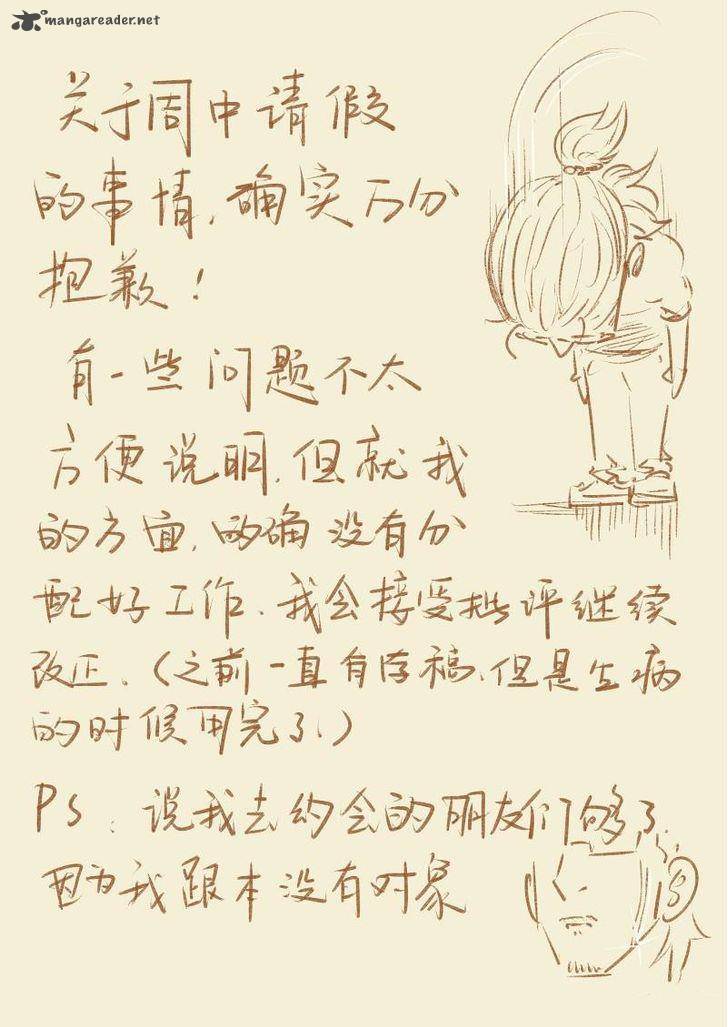 mangareader.net
关于周中请假
的事情，确实万分
抱歉！
有一些问题不太
方便说明，但就我
的方面，的确没有分
配好工作、我会接受批评继续
改正、（之前一直有存稿、但是生病
的时候用完了、）
PS：说我去约会的朋友们够了
因为我跟本没有对象